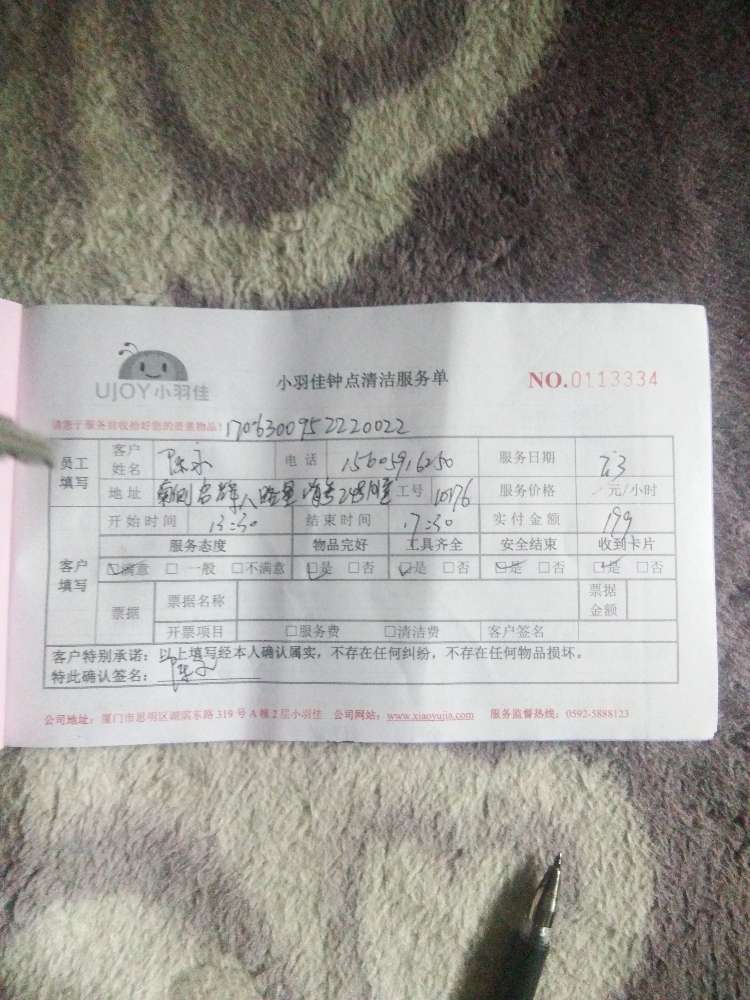 UJOY小羽佳
小羽佳钟点清洁服务单
NO.0113334
请您于服务前收拾好您的贵重物品！1706300952220022
员工填写 客户姓名 陈 电话 15605916250 服务日期 7.3
地址 工号 10176 服务价格 元/小时
开始时间 13:30 结束时间 17:30 实付金额 199
客户填写 服务态度 物品完好 工具齐全 安全结束 收到卡片
☑满意 □一般 □不满意 ☑是 □否 ☑是 □否 ☑是 □否 ☑是 □否
票据 票据名称 票据金额
开票项目 □服务费 □清洁费 客户签名
客户特别承诺：以上填写经本人确认属实，不存在任何纠纷，不存在任何物品损坏。
特此确认签名：陈
公司地址：厦门市思明区湖滨东路 319 号 A 幢 2 层小羽佳 公司网站：www.xiaoyujia.com 服务监督热线：0592-5888123